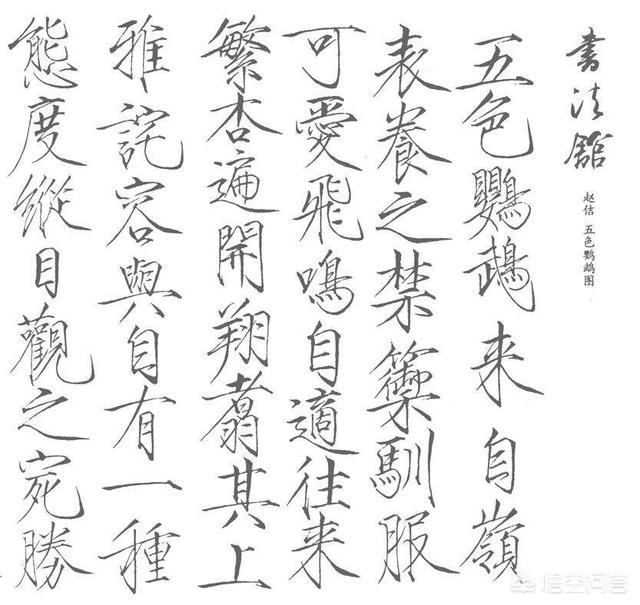 書法館
赵佶 五色鹦鹉图
五色鸚鵡来自嶺
表養之禁籞馴服
可愛飛鳴自適往来
繁杏遍開翔翥其上
雅詫容與自有一種
態度縱目觀之宛勝
悟空问答